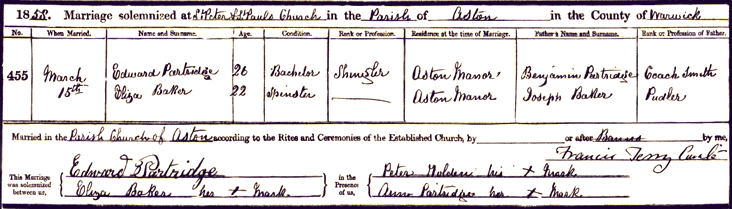 1858. Marriage solemnized at St Peter & St Pauls Church in the Parish of Aston in the County of Warwick
No. When Married. Name and Surname. Age. Condition. Rank or Profession. Residence at the time of Marriage. Father's Name and Surname. Rank or Profession of Father.
455 March 15th Edward Partridge 26 Bachelor Shingler Aston Manor Benjamin Partridge Coach Smith
Eliza Baker 22 Spinster Aston Manor Joseph Baker Pudler
Married in the Parish Church of Aston according to the Rites and Ceremonies of the Established Church, by or after Banns by me,
Francis Terry Curate
This Marriage was solemnized between us,
Edward Partridge
Eliza Baker her + Mark
in the Presence of us,
Peter his + Mark
Ann Partridge her + Mark